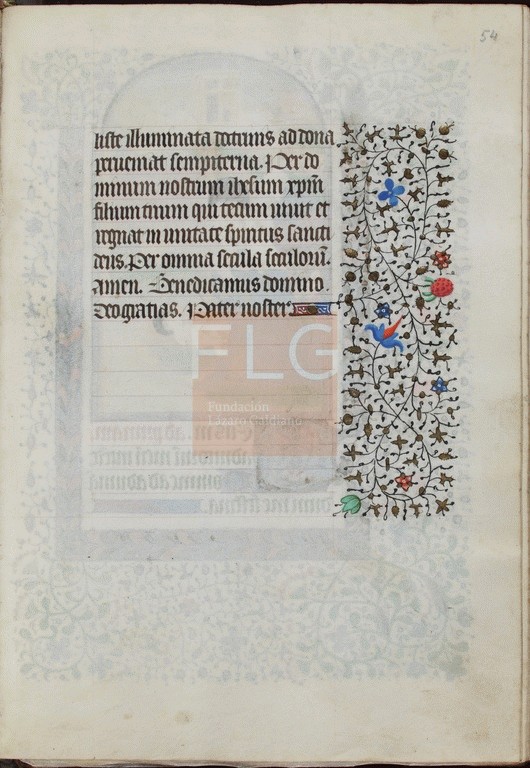 54
liste illuminata doctrinis ad dona
perueniat sempiterna. Per do
minum nostrum ihesum xpm̄
filium tuum qui tecum uiuit et
regnat in unitate spiritus sancti
deus. Per omnia secula seculorū.
Amen. Benedicamus domino.
Deo gratias. Pater noster
FLG
Fundación
Lázaro Galdiano